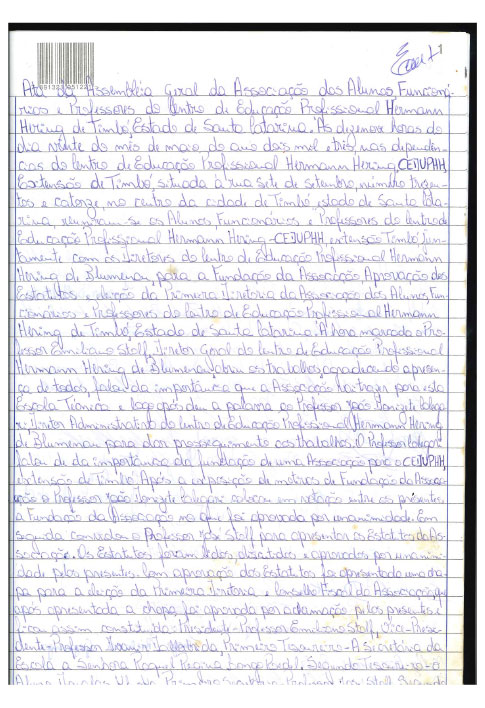 Ata da Assembléia Geral da Associação dos Alunos, Funcioná
rios e Professores do Centro de Educação Profissional Hermann
Hering de Timbó, Estado de Santa Catarina. Às dezenove horas do
dia vinte do mês de maio do ano dois mil e três, nas dependên
cias do Centro de Educação Profissional Hermann Hering, CEDUPHH,
Extensão de Timbó, situada à rua sete de setembro, número trezen
tos e catorze, no centro da cidade de Timbó, estado de Santa Cata
rina, reuniram-se os Alunos, Funcionários e Professores do Centro de
Educação Profissional Hermann Hering - CEDUPHH, extensão Timbó jun
tamente com os Diretores do Centro de Educação Profissional Hermann
Hering de Blumenau, para a Fundação da Associação, Aprovação dos
Estatutos e eleição da Primeira Diretoria da Associação dos Alunos, Fun
cionários e Professores do Centro de Educação Profissional Hermann
Hering de Timbó, Estado de Santa Catarina. A hora marcada o Pro
fessor Emiliano Stoll, Diretor Geral do Centro de Educação Profissional
Hermann Hering de Blumenau abriu os trabalhos, agradeceu a presen
ça de todos, falou da importância que a Associação traz para esta
Escola Técnica e logo após deu a palavra ao Professor João
Diretor Administrativo do Centro de Educação Profissional Hermann Hering
de Blumenau para dar prosseguimento aos trabalhos. O Professor
falou da importância da fundação de uma Associação para o CEDUPHH,
extensão de Timbó. Após a exposição de motivos de Fundação da Associa
ção o Professor João colocou em votação entre os presentes,
a Fundação da Associação no que foi aprovada por unanimidade. Em
seguida convidou o Professor José Stoll para apresentar os Estatutos da As
sociação. Os Estatutos foram lidos, discutidos e aprovados por unani
midade pelos presentes. Com aprovação dos Estatutos foi apresentada uma cha
pa para a eleição da Primeira Diretoria e Conselho Fiscal da Associação, que
após apresentada a chapa foi aprovada por aclamação pelos presentes.
Ficou assim constituída: Presidente - Professor Emiliano Stoll, Vice-Presi
dente - Professor Primeiro Tesoureiro - A secretária da
Escola a Senhora Raquel Regina Segundo Tesoureiro - o